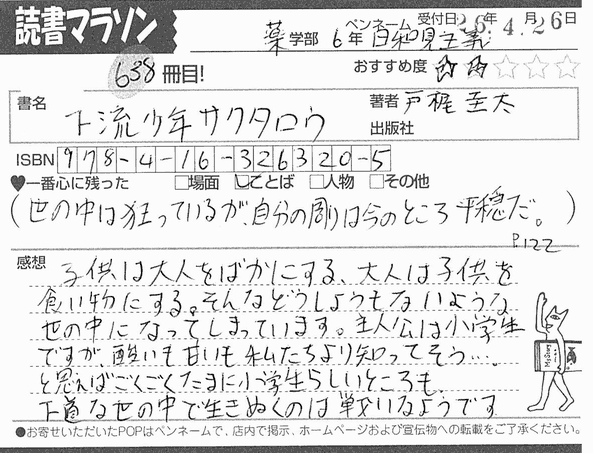 読書マラソン
薬学部 6年 ペンネーム 日和見主義 受付日 26年4月26日
638冊目! おすすめ度 ★★☆☆☆
書名 下流少年サクタロウ 著者 戸梶圭太
出版社
ISBN 978-4-16-326320-5
♥一番心に残った □場面 ☑ことば □人物 □その他
(世の中は狂っているが、自分の周りは今のところ平穏だ。)
P.122
感想 子供は大人をばかにする、大人は子供を
食い物にする。そんなどうしようもないような
世の中になってしまっています。主人公は小学生
ですが、酸いも甘いも私たちより知ってそう…。
と思えばごくごくたまに小学生らしいところも。
下道な世の中で生きぬくのは難いなようです
●お寄せいただいたPOPはペンネームで、店内で掲示、ホームページおよび宣伝物への転載をご了承ください。